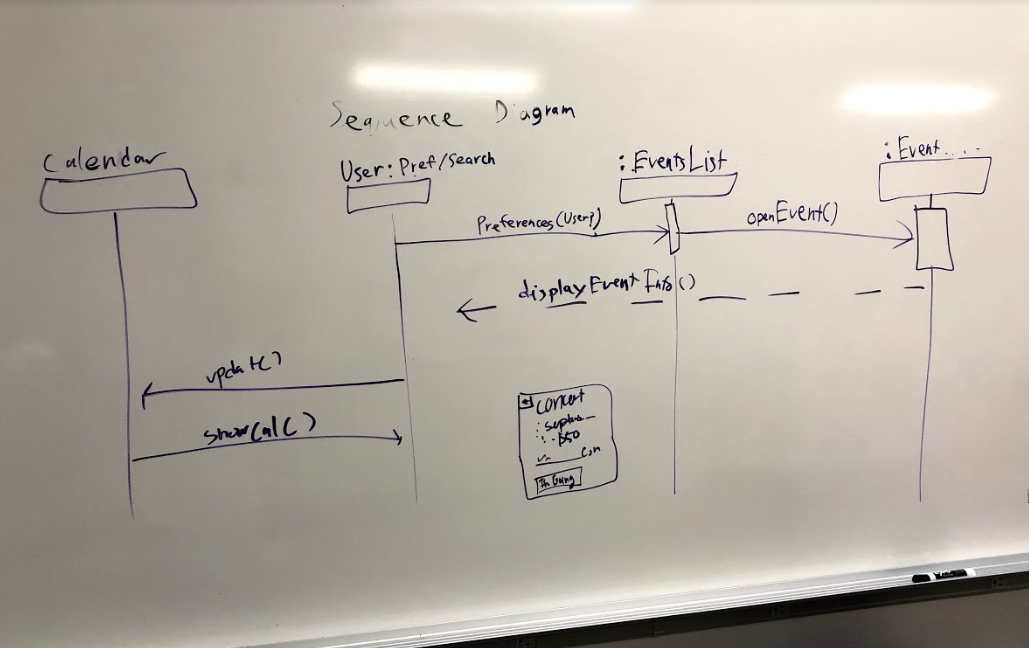 Sequence Diagram
Calendar
User: Pref/Search
: EventsList
: Event.....
Preferences(User?)
openEvent()
displayEvent Info()
update()
showCal()
concert
$50
I'm Going